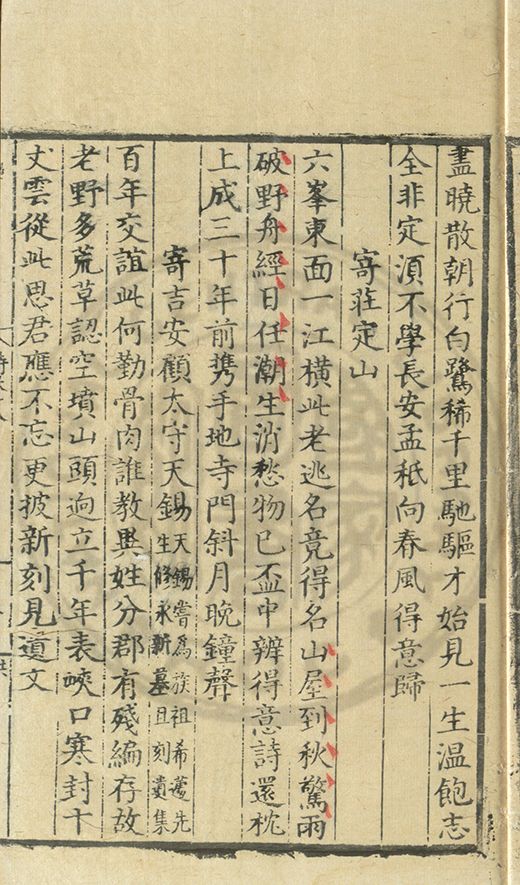 盡曉散朝行白鷺稀千里馳驅才始見一生溫飽志
全非定須不學長安孟秖向春風得意歸
寄莊定山
六峯東面一江橫此老逃名竟得名山屋到秋驚雨
破野舟經日任潮生消愁物已盃中辦得意詩還枕
上成三十年前携手地寺門斜月晩鐘聲
寄吉安顧太守天錫天錫嘗爲族祖希蘧先
生修永新墓且刻貴集
百年交誼此何勤骨肉誰教異姓分郡有殘編存故
老野多荒草認空墳山頭迥立千年表峽口寒封十
丈雲從此思君應不忘更披新刻見遺文